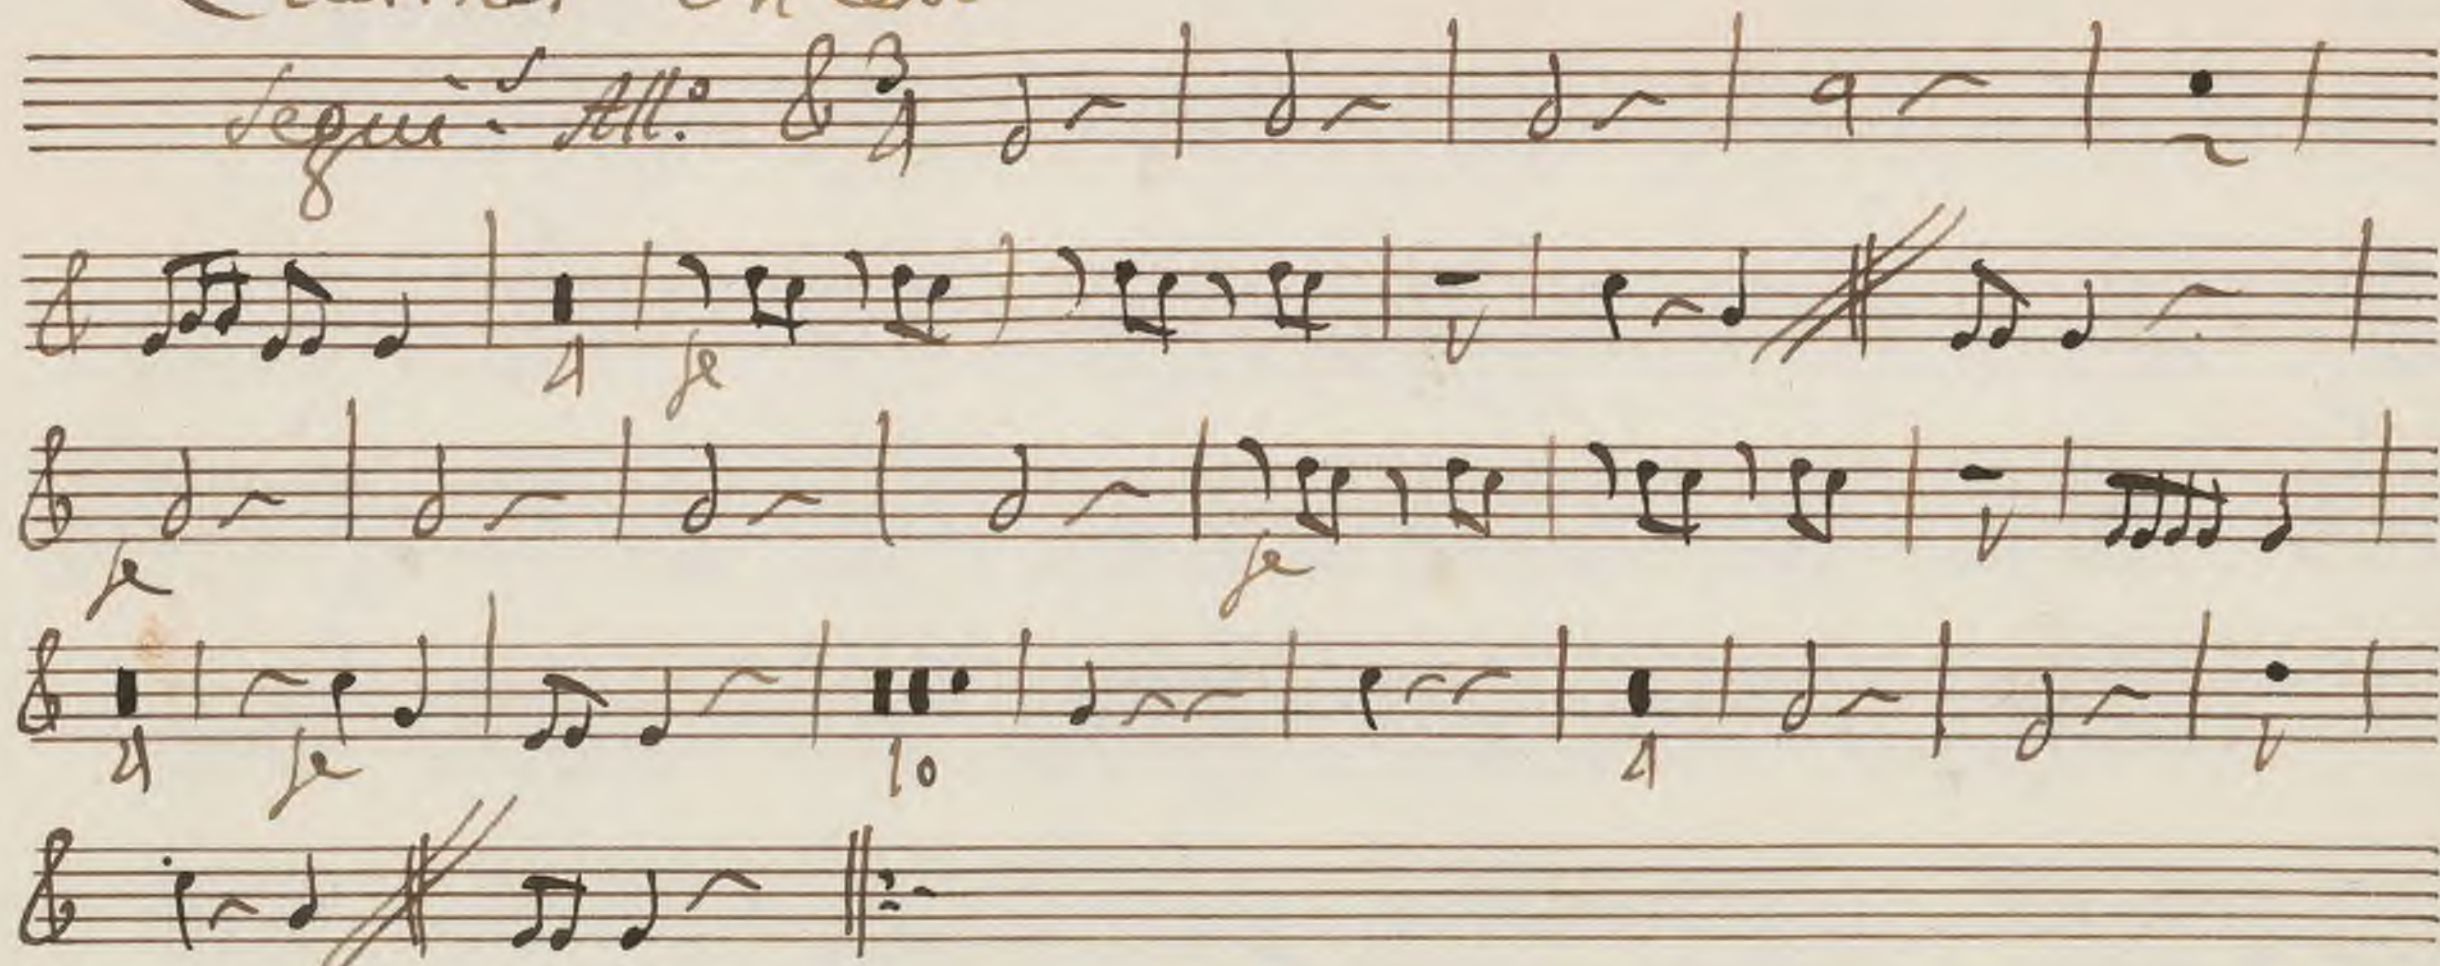 Segui: All:º 3 4
4 fe V
fe fe V
4 fe 10 4 V